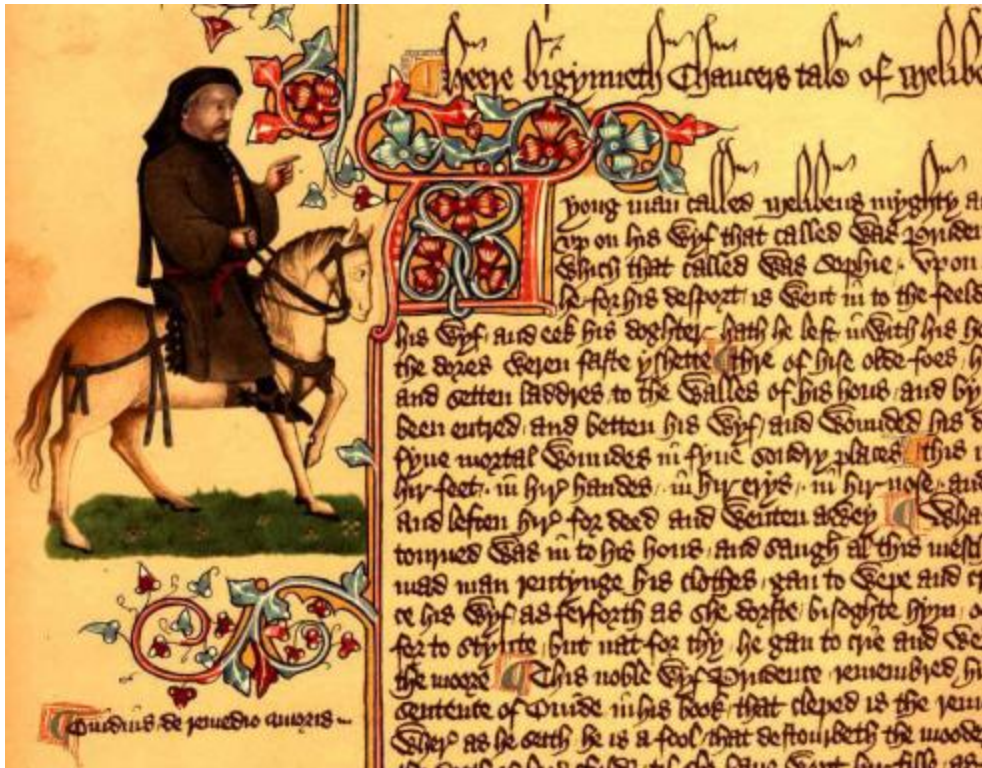 Heere bigynneth Chaucers tale of Melibe
yong man called Melibeus myghty a
vp on his wyf that called was Pruden
which that called was Sophie vpon
he for his desport is went in to the feeld
his wyf and eek his doghter hath he left inwith his h
the dores weren faste yshette thre of hise olde foes h
and setten laddres to the walles of his hous and by
been entred and betten his wyf and wounded his d
fyue mortal woundes in fyue sondry places this i
hir feet in hir handes in hir erys in hir nose and
and leften hir for deed and wenten awey Wha
tourned was in to his hous and saugh al this mesch
mad man rentynge his clothes gan to wepe and c
ce his wyf as ferforth as she dorste bisoghte hym o
for to stynte but nat for thy he gan to crie and we
the moore This noble wyf Prudence remembred hi
sentence of Ouide in his book that cleped is the rem
wher as he seith he is a fool that destourbeth the mooder
Ouidius de remedio amoris